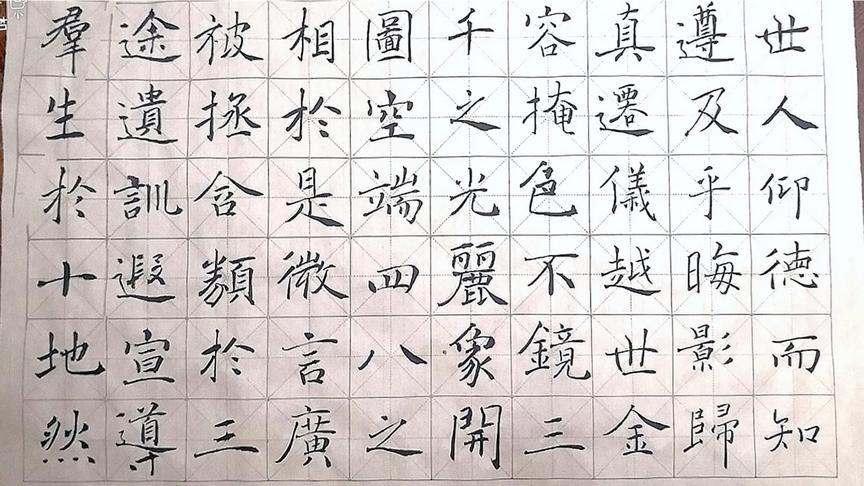 世人仰德而知
遵及乎晦影歸
真遷儀越世金
容掩色不鏡三
千之光麗象開
圖空端四八之
相於是微言廣
被拯含類於三
途遺訓遐宣導
羣生於十地然